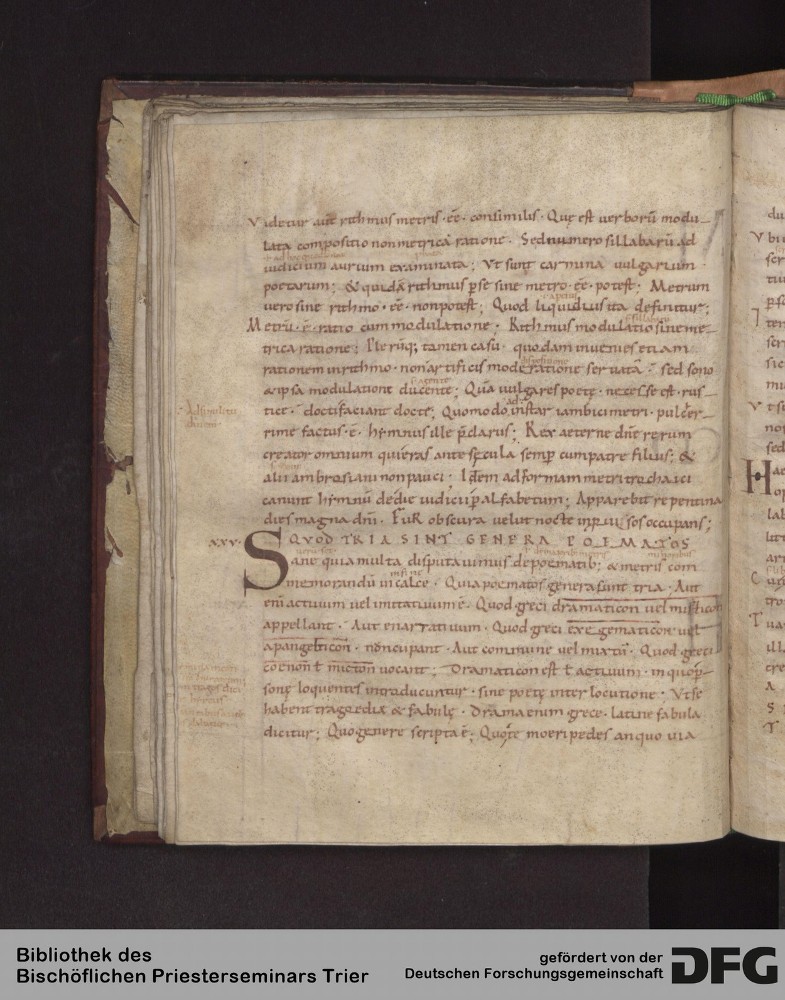 Videtur aut̄ rithmus metris · eē · consimilis · Quę est uerborū modu-
lata compositio non metrica ratione · Sed numero sillabarū ad
iudicium aurium examinata ; Vt sunt carmina uulgarium
poetarum ; & quidā rithmus p̄ se sine metro · eē · potest ; Metrum
uero sine rithmo · eē · non potest ; Quod liquidius ita definitur ;
Metrū · ē · ratio cum modulatione ; Rithmus modulatio sine me-
trica ratione ; Plerūq; tamen casu · quodam inuenies etiam
rationem in rithmo · non artificis moderatione seruatā · sed sono
& ipsa modulatione ducente ; Quā uulgares poetę · necesse est · rus-
tice · docti faciant docte ; Quomodo instar iambici metri · pulcer-
rime factus · ē · hymnus ille p̄clarus ; Rex aeterne dn̄e rerum
creator omnium qui eras ante sęcula semp̄ cum patre filius ; &
alii ambrosiani non pauci ; Idem ad formam metri trochaici
canunt hymnū de die iudicii p̄ alfabetum ; Apparebit repentina
dies magna dn̄i · Fur obscura uelut nocte inprouisos occupans ;
xxv · QVOD TRIA SINT GENERA POEMATOS
Sane quia multa disputauimus de poematib; & metris com
memorandū in calce · Quia poematos genera sunt tria · Aut
enī actiuum uel imitatiuum ē · Quod greci dramaticon uel misticon
appellant · Aut enarratiuum · Quod greci exegematicon uel
apangelticon · nōncupant · Aut commune uel mixtū · Quod greci
coenon ł micton uocant ; Dramaticon est ł actiuum · in quo p̄-
sonę loquentes introducuntur · sine poetę interlocutione · Vt se
habent tragoediæ & fabulę · Drama enim grece · latine fabula
dicitur ; Quo genere scripta ē ; Quo te moeri pedes an quo uia
Bibliothek des
Bischöflichen Priesterseminars Trier
gefördert von der
Deutschen Forschungsgemeinschaft
DFG